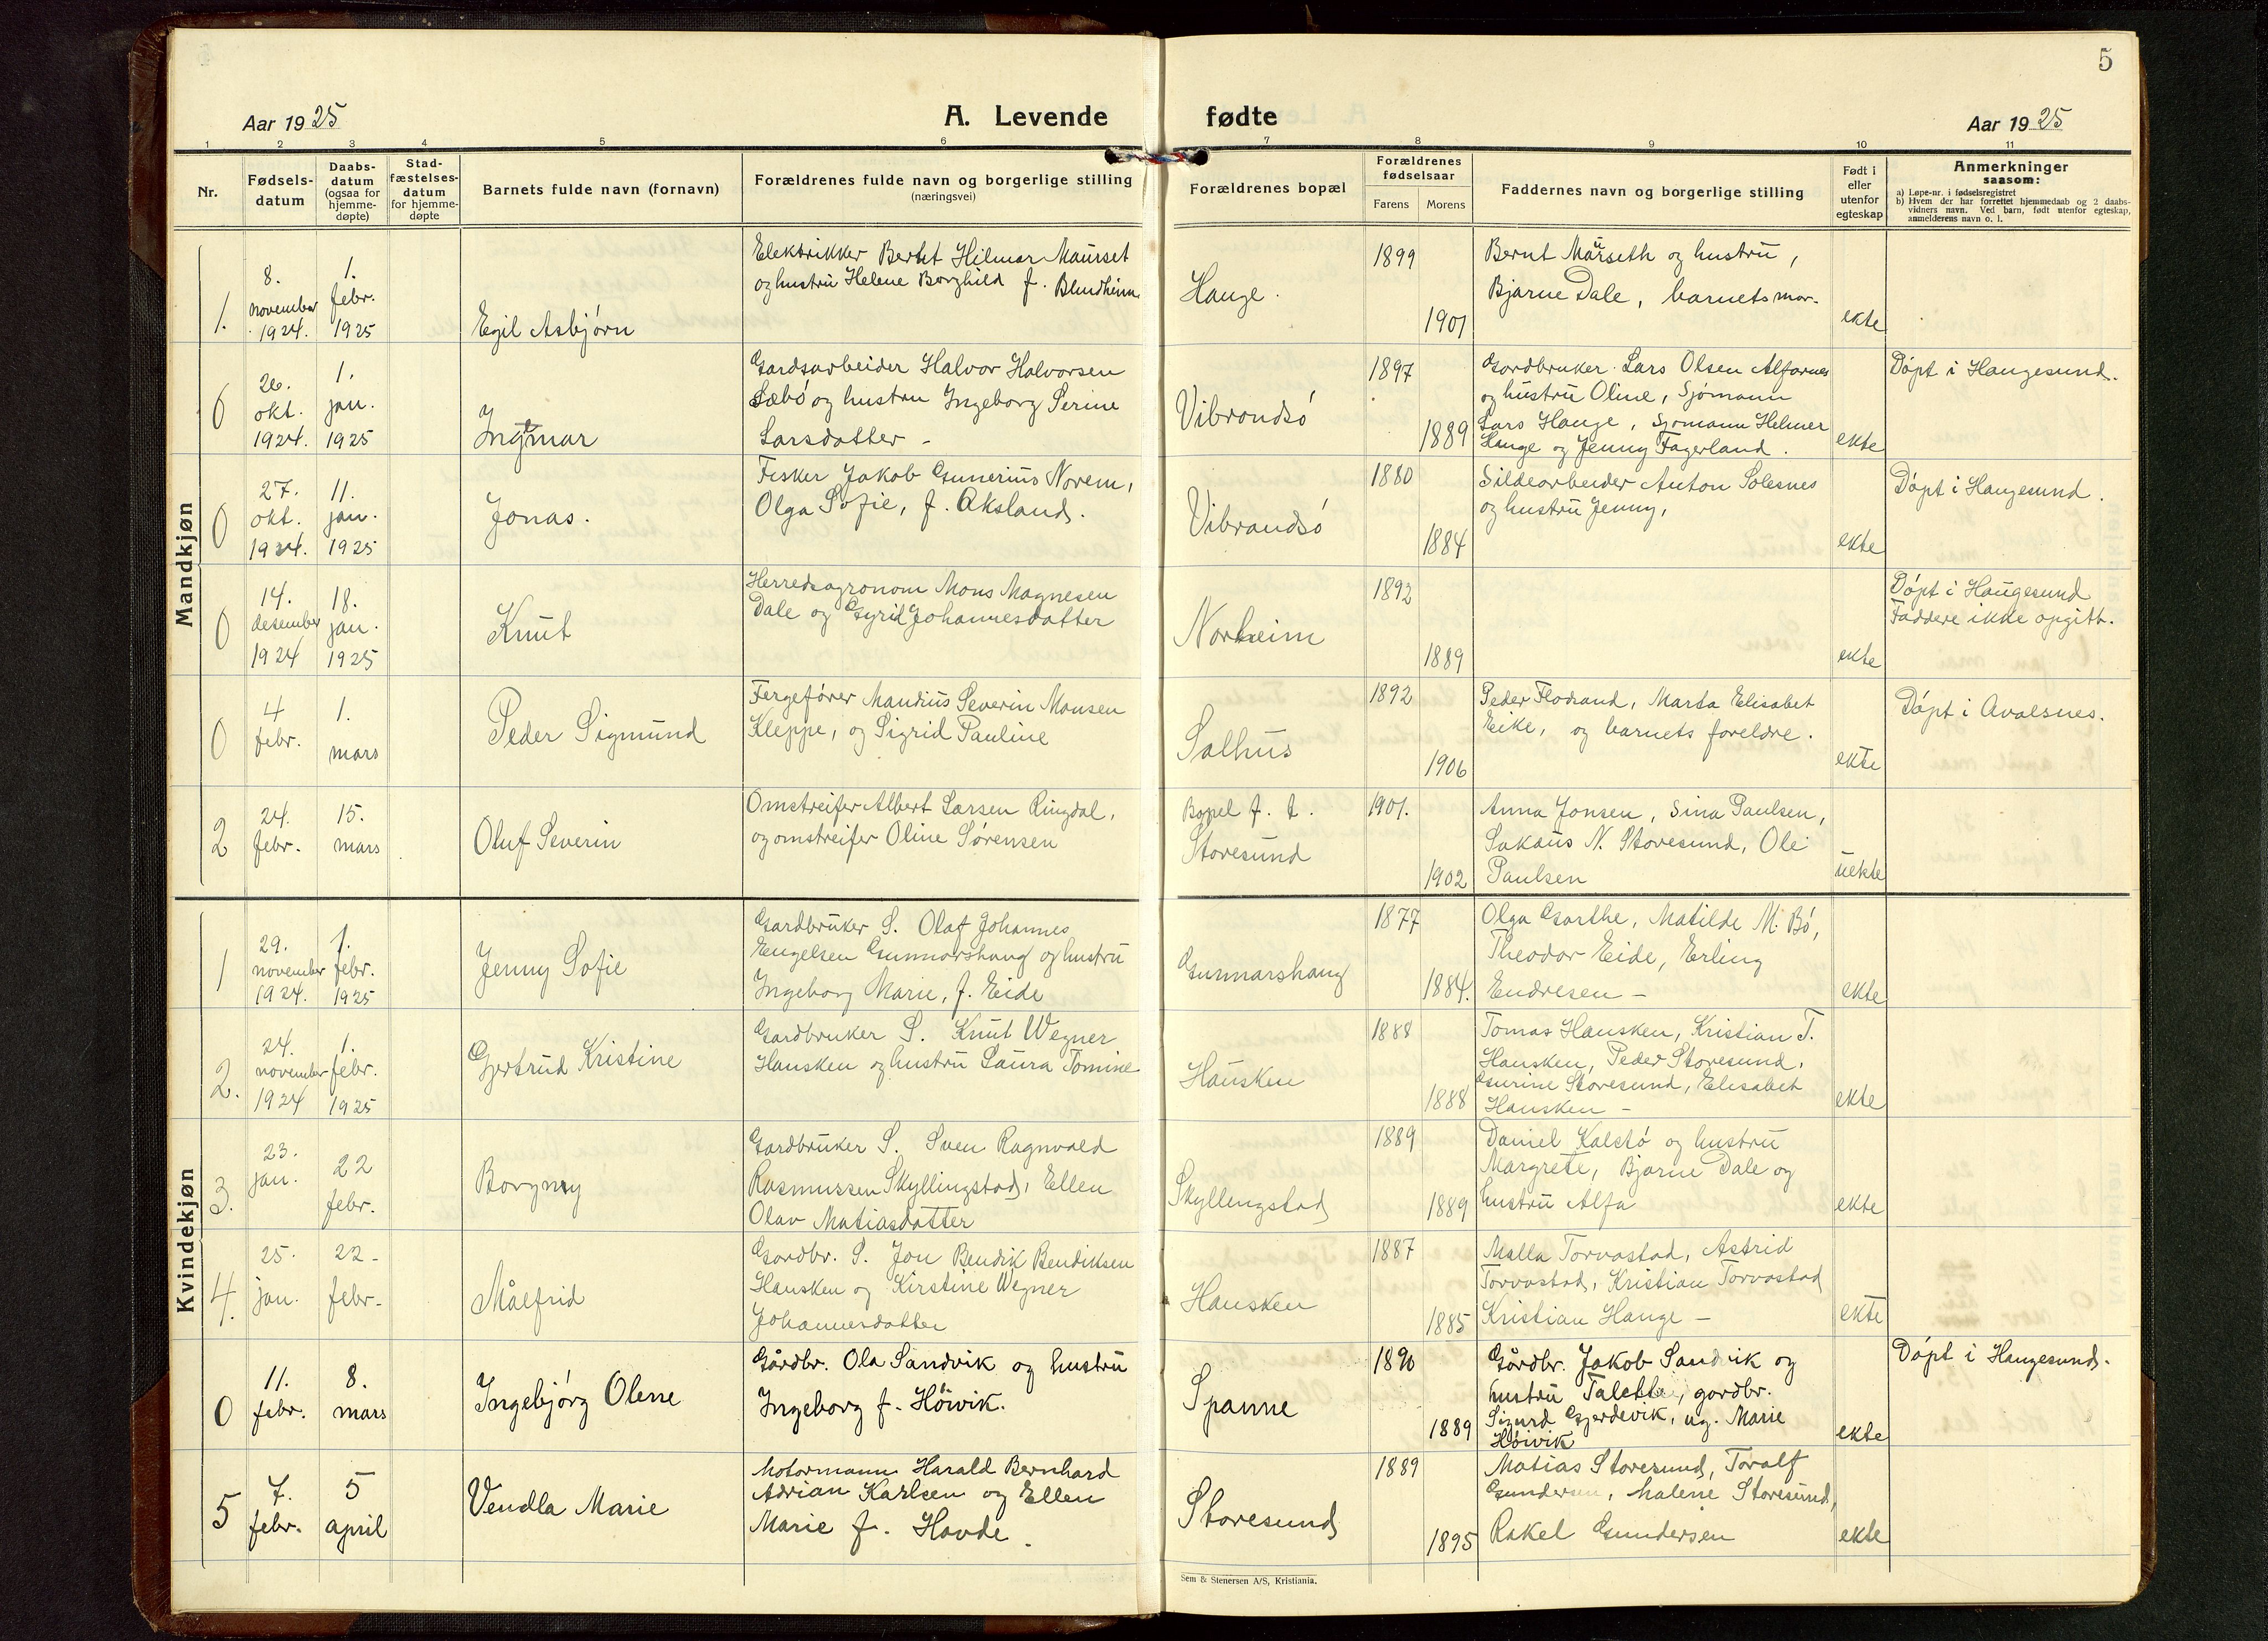 5
Aar 1925
A. Levende fødte
Aar 1925
1 2 3 4 5 6 7 8 9 10 11
Nr.
Fødsels-
datum
Daabs-
datum
(ogsaa for
hjemme-
døpte)
Stad-
fæstelses-
datum
for hjemme-
døpte
Barnets fulde navn (fornavn)
Forældrenes fulde navn og borgerlige stilling
(næringsvei)
Forældrenes bopæl
Forældrenes
fødselsaar
Farens Morens
Faddernes navn og borgerlige stilling
Født i
eller
utenfor
egteskap
Anmerkninger
saasom:
a) Løpe-nr. i fødselsregistret
b) Hvem der har forrettet hjemmedaab og 2 daabs-
vidners navn. Ved barn, født utenfor egteskap,
anmelderens navn o. l.
Mandkjøn
1.
8.
november
1924.
1.
febr.
1925
Egil Asbjørn
Elektrikker Bernt Hilmar Maurset
og hustru Helene Borghild f. Blindheim
Hauge.
1899
1901
Bernt Maurseth og hustru,
Bjarne Dale, barnets mor.
ekte
0
26.
okt.
1924.
1.
jan.
1925
Ingemar
Gardsarbeider Halvor Halvorsen
Sæbö og hustru Ingeborg Serine
Larsdatter -
Vibrandsö
1897
1889
Gardbruker Lars Olsen Alfarnes
og hustru Oline, Sjømann
Lars Hauge, Sjømann Helmer
Hauge og Jenny Fagerland.
ekte
Döpt i Haugesund.
0
27.
okt.
1924.
11.
jan.
1925
Jonas.
Fisker Jakob Gunerius Norem,
Olga Sofie, f. Aksland.
Vibrandsö
1880
1884
Sildearbeider Anton Solesnes
og hustru Jenny,
ekte
Döpt i Haugesund.
0
14.
desember
1924
18.
jan.
1925
Knut
Herredsagronom Mons Magnesen
Dale og Gyrid Johannesdatter
Norheim
1892
1889
ekte
Döpt i Haugesund
Faddere ikke opgitt.
0
4
febr.
1.
mars
Peder Sigmund
Fergeförer Mandius Severin Monsen
Kleppe, og Sigrid Pauline
Salhus
1892
1906
Peder Flodrand, Marta Elisabet
Eike, og barnets foreldre.
ekte
Döpt i Avalsnes.
2
24.
febr.
15.
mars
Oluf Severin
Omstreifer Albert Larsen Ringdal,
og omstreifer Oline Sørensen
Bopel f. t.
Storesund
1901.
1902
Anna Jonsen, Sina Paulsen,
Sakaus N. Storesund, Ole
Paulsen
uekte
Kvindekjøn
1
29.
november
1924.
1.
febr.
1925
Jenny Sofie
Gardbruker S. Olaf Johannes
Engelsen Gunnarshaug og hustru
Ingeborg Marie, f. Eide
Gunnarshaug
1877
1884.
Olga Garthe, Matilde M. Bö,
Theodor Eide, Erling
Endresen -
ekte
2.
24.
november
1924
1.
febr.
1925
Gjertrud Kristine
Gardbruker S. Knut Wegner
Hausken og hustru Laura Tomine
Hausken
1888
1888
Tomas Hausken, Kristian T.
Hausken, Peder Storesund,
Gurine Storesund, Elisabet
Hausken -
ekte
3.
23.
jan.
22
febr.
Borgny
Gardbruker S. Sven Ragnvald
Rasmussen Skyllingstad, Ellen
Olav Matiasdatter
Skyllingstad
1889
1889
Daniel Kalstö og hustru
Margrete, Bjarne Dale og
hustru Alfa
ekte
4.
25.
jan.
22-
febr-
Målfrid
Gardbr. S. Jon Bendik Bendiksen
Hausken og Kirstine Wegner
Johannesdatter
Hausken
1887
1885
Malla Torvastad, Astrid
Torvastad, Kristian Torvastad
Kristian Hauge -
ekte
0
11.
febr.
8.
mars
Ingebjörg Olene
Gårdbr. Ola Sandvik og hustru
Ingeborg f. Höivik.
Spanne
1890
1889
Gårdbr. Jakob Sandvik og
hustru Talette, gardbr.
Sigurd Gjerdevik, ug. Marie
Höivik
ekte
Döpt i Haugesund.
5
7.
febr.
5
april
Vendla Marie
Motormann Harald Bernhard
Adrian Karlsen og Ellen
Marie f. Hovde.
Storesund
1889
1895
Matias Storesund, Toralf
Gundersen, Malene Storesund,
Rakel Gundersen
ekte
Sem & Stenersen A/S, Kristiania.